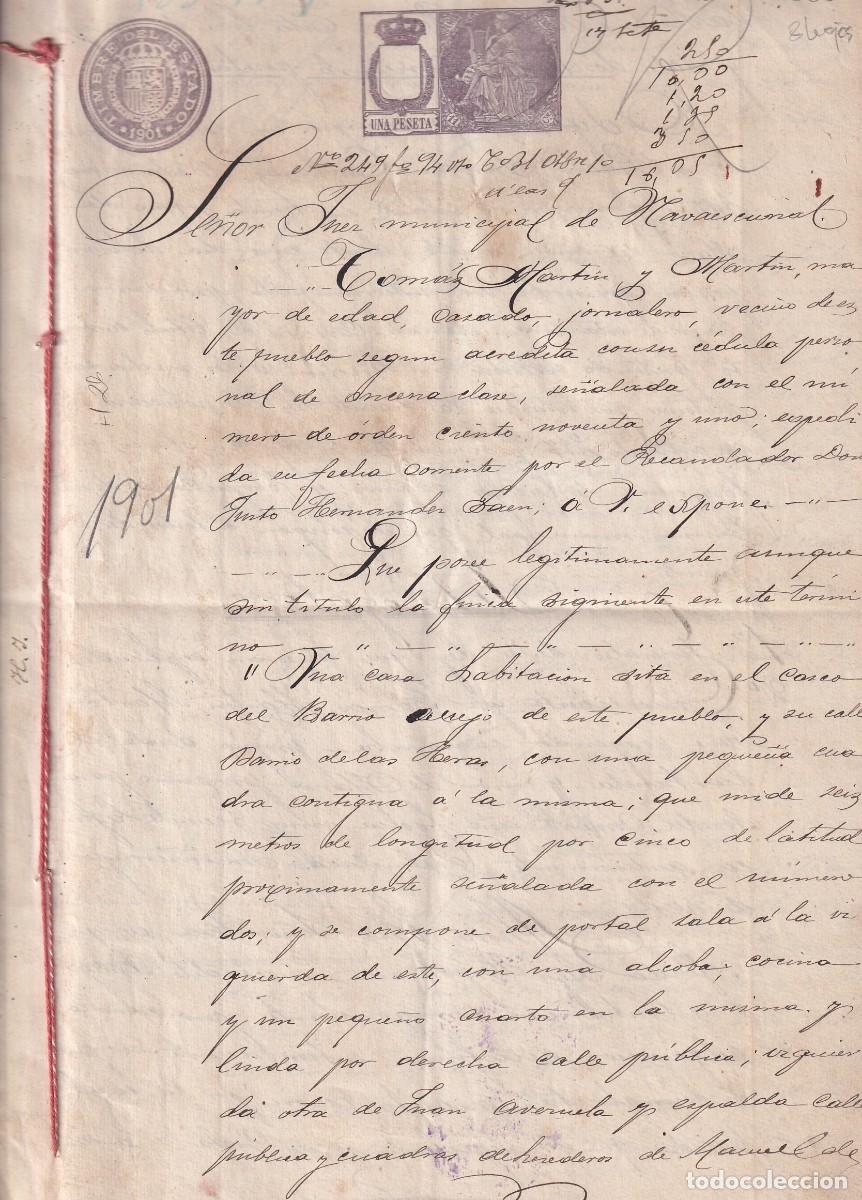 TIMBRE DEL ESTADO
1901
UNA PESETA
17
8 hojas
250
10,00
1,20
1 85
3 50
16,05
Nº 249
Señor Juez municipal de Navaescurial.
Tomás Martin y Martin, ma
yor de edad, casado, jornalero, vecino de es
te pueblo segun acredita con su cédula perso
nal de oncena clase, señalada con el nú
mero de órden ciento noventa y uno; espedi
da en fecha corriente por el Recaudador Don
Justo Hernandez Saen; á V. expone
Que posee legitimamente aunque
sin titulo la finca siguiente en este térmi
no
" Una casa habitacion sita en el casco
del Barrio de este pueblo, y su calle
Barrio de las Heras, con una pequeña cua
dra contigua á la misma; que mide seis
metros de longitud por cinco de latitud
proximamente señalada con el número
dos; y se compone de portal sala á la iz
quierda de este, con una alcoba; cocina
y un pequeño cuarto en la misma. y
linda por derecha calle pública; izquier
da otra de Juan y espalda calle
pública y cuadras de herederos de Manuel de
1901
H. J.
todocoleccion